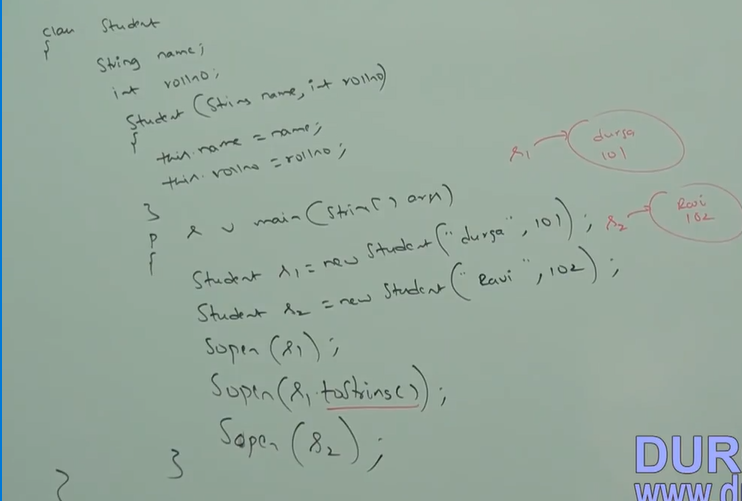 class Student
{
String name;
int rollno;
Student (String name, int rollno)
{
this.name = name;
this.rollno = rollno;
}
p s v main(String[] args)
{
Student s1 = new Student("durga", 101);
Student s2 = new Student("Ravi", 102);
Sopln(s1);
Sopln(s1.toString());
Sopln(s2);
}
}
s1
durga
101
s2
Ravi
102
DUR
www.d